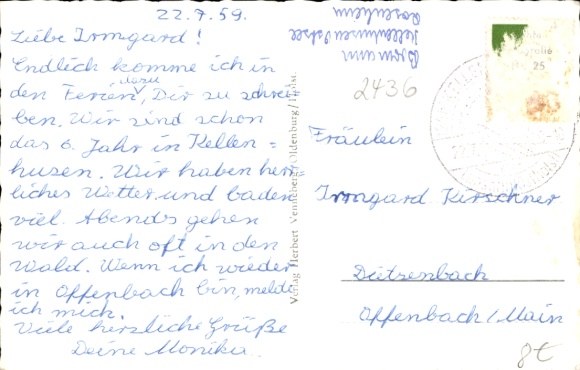 22.7.59.
Liebe Irmgard!
Endlich komme ich in
den Ferien dazu, Dir zu schrei-
ben. Wir sind schon
das 6. Jahr in Kellen=
husen. Wir haben herr-
liches Wetter und baden
viel. Abends gehen
wir auch oft in den
Wald. Wenn ich wieder
in Offenbach bin, melde
ich mich.
Viele herzliche Grüße
Deine Monika.
Kellenhusen Ostsee
Rosenheim
Verlag Herbert Venneberg, Oldenburg/Holst.
2436
25
Fräulein
Irmgard Kirschner
Dietzenbach
Offenbach/Main
8€